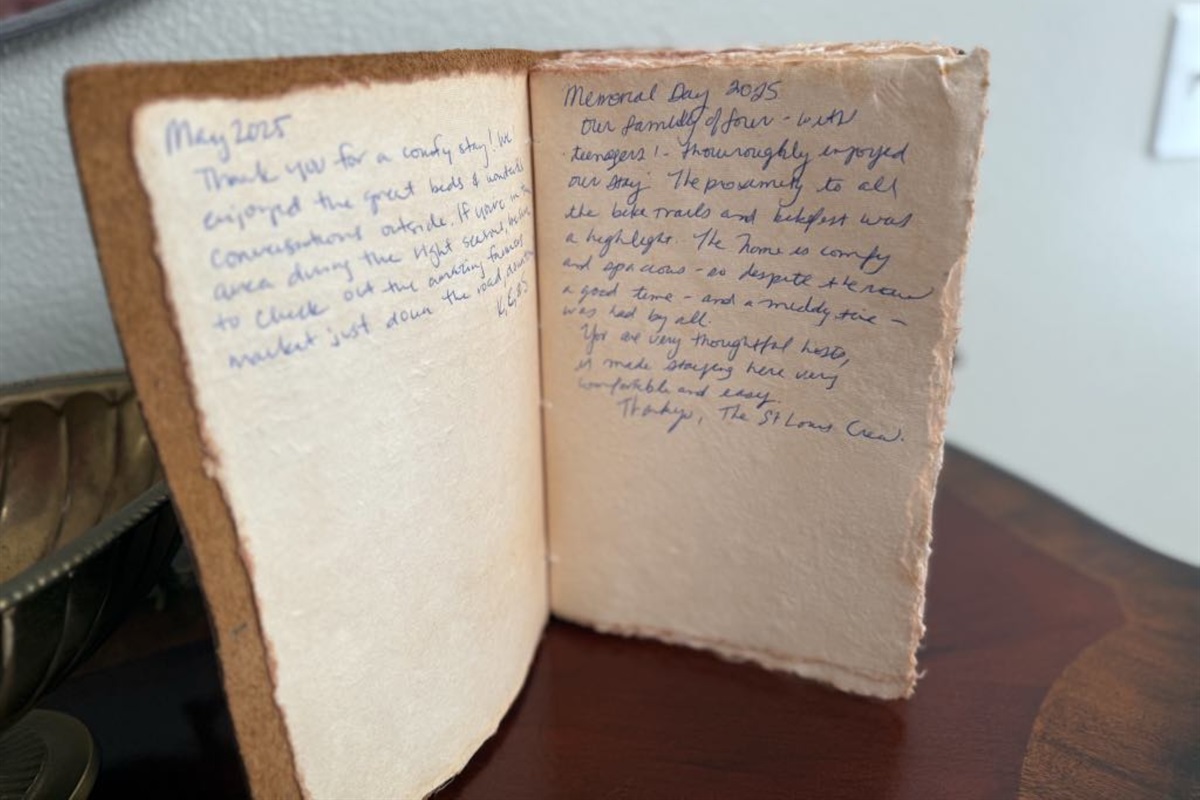 May 2025
Thank you for a comfy stay! We
enjoyed the great beds &
conversations outside. If you're in the
area during the right season, be sure
to check out the amazing farmers
market just down the road
Memorial Day 2025
Our family of four - with
teenagers! - thouroughly enjoyed
our stay. The proximity to all
the bike trails and bikefest was
a highlight. The home is comfy
and spacious - so despite the rain
a good time - and a muddy -
was had by all.
You are very thoughtful hosts,
it made staying here very
comfortable and easy.
Thank you, The St Louis Crew.